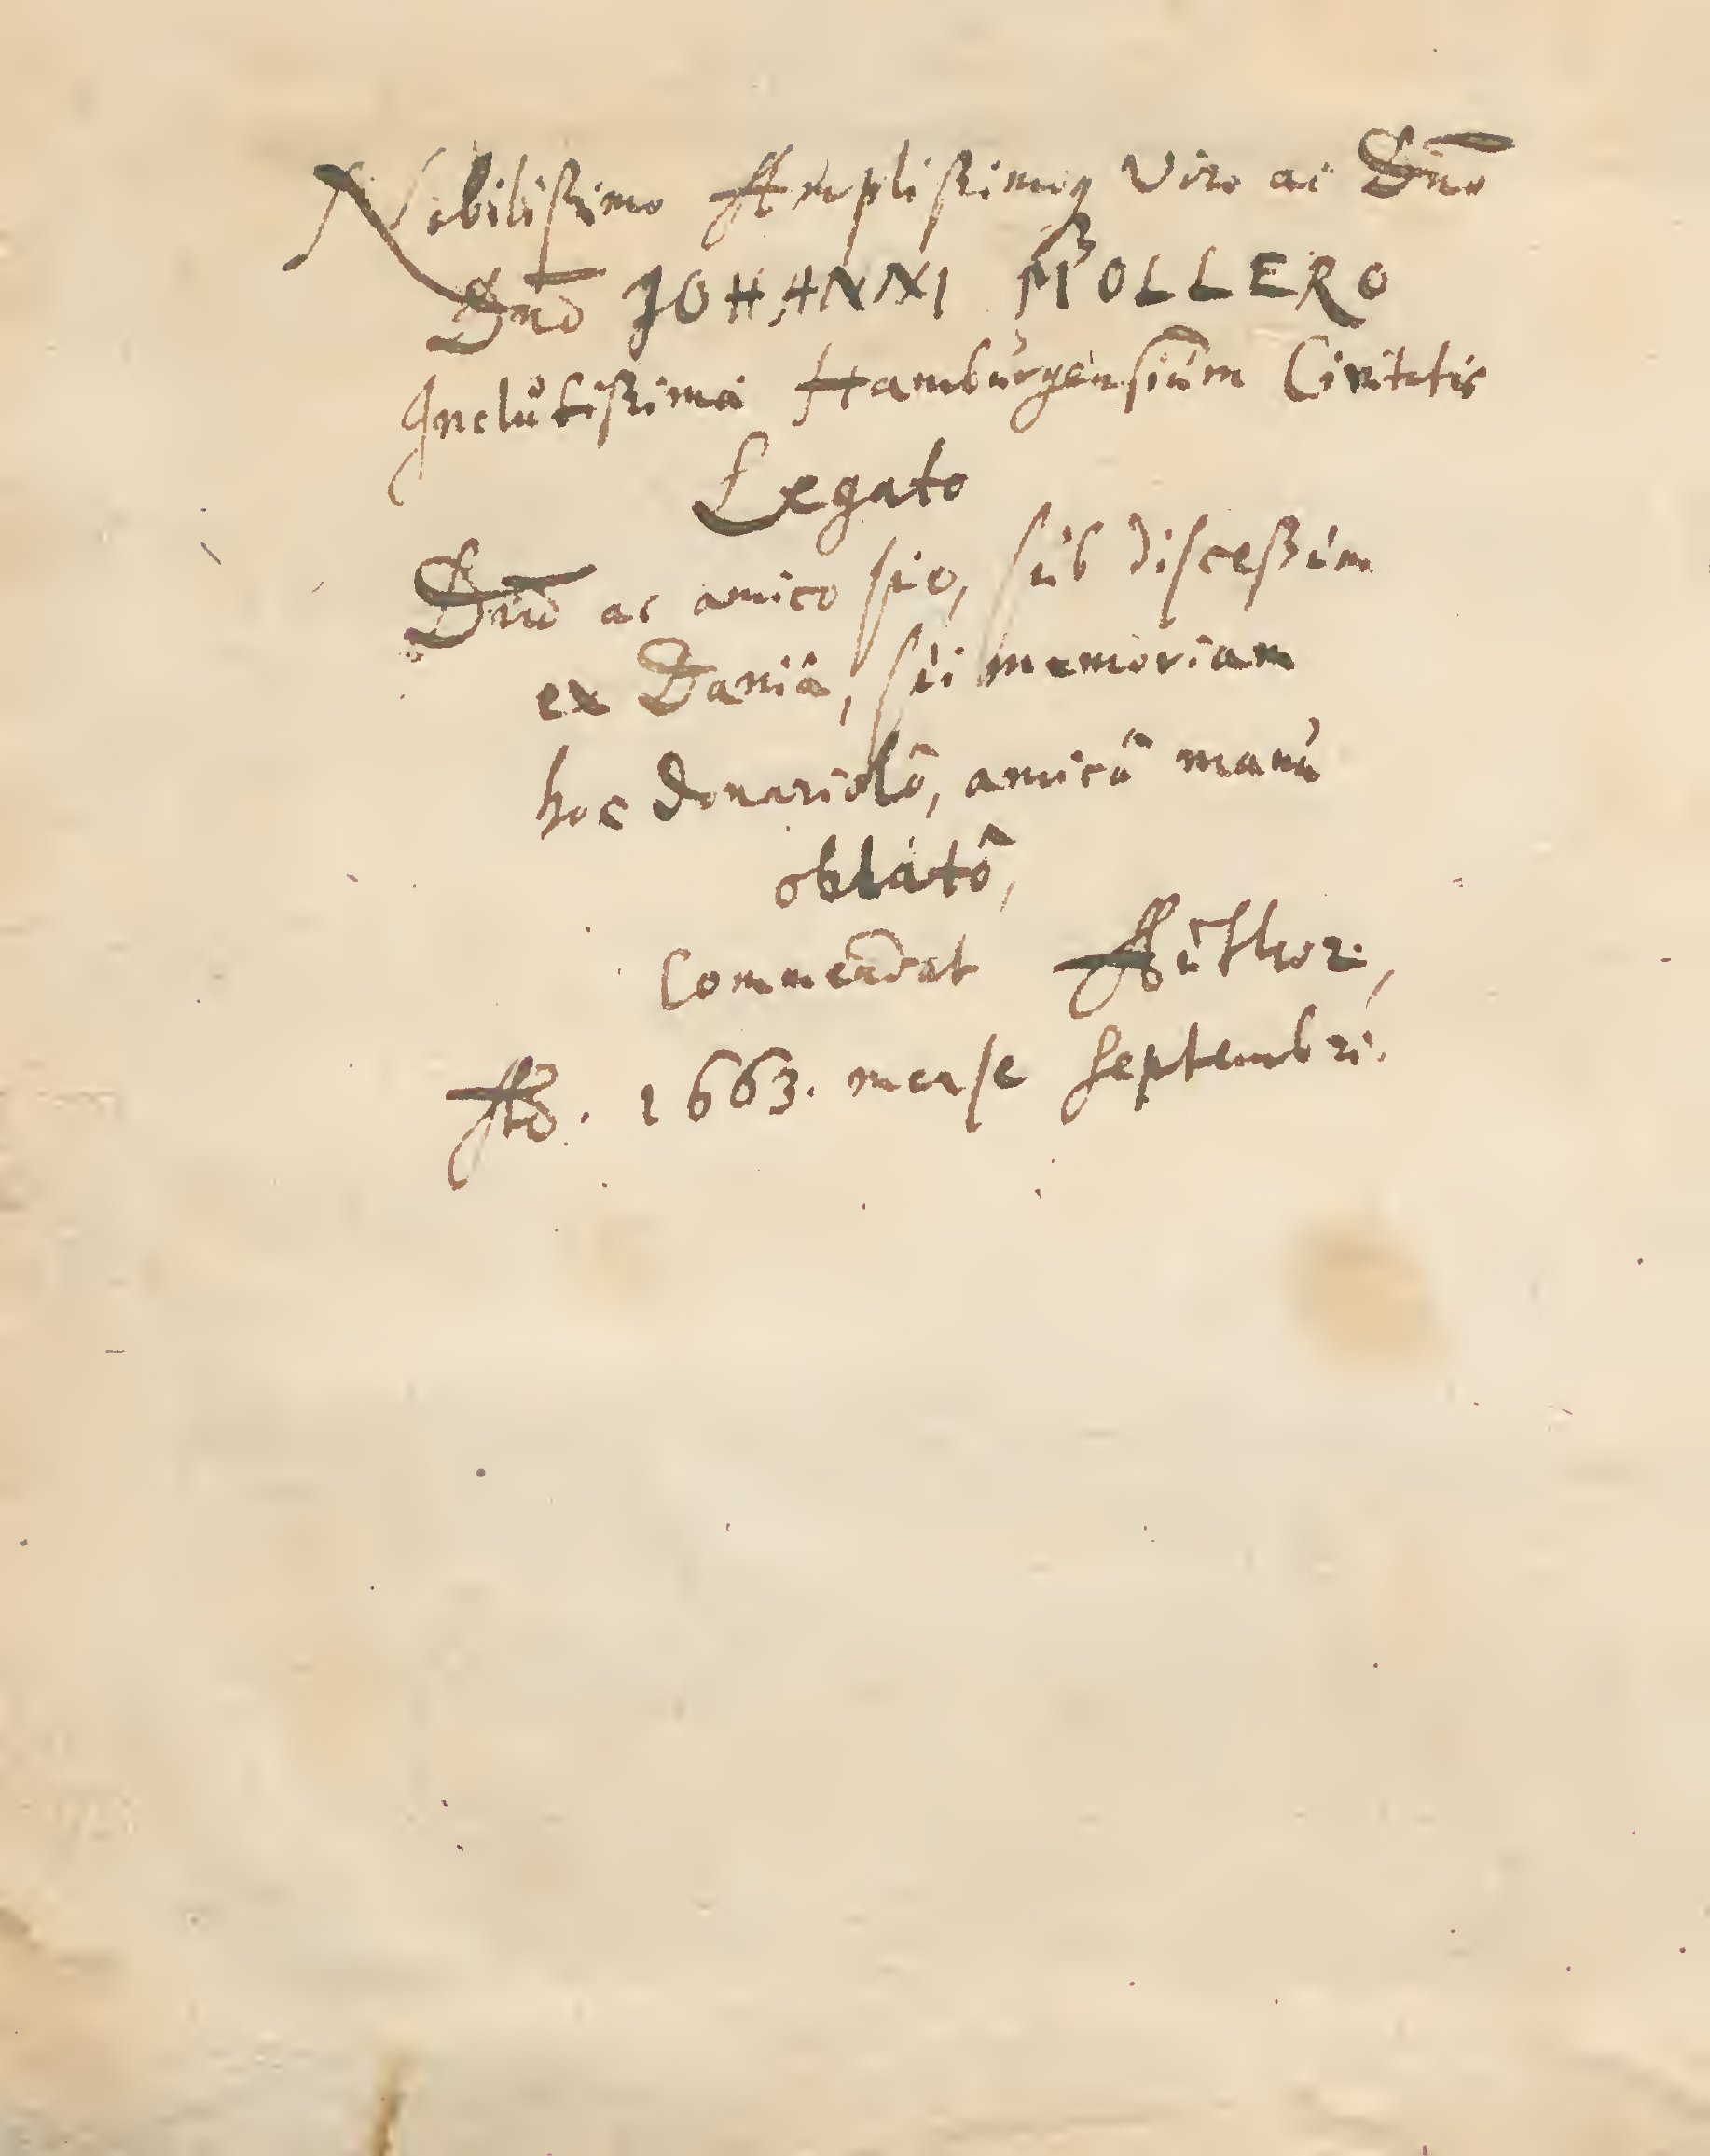 Nobilißimo Amplißimoq Viro ac Dn̄o
Dn̄o JOHANNI MOLLERO
Inclutißimæ Hamburgensium Civitatis
Legato
Dn̄o ac amico suo, sub disceßum
ex Daniâ, sui memoriam
hoc donariolô, amicâ manu
oblatô,
Commendat Author,
Aõ. 1663. mense Septembri.